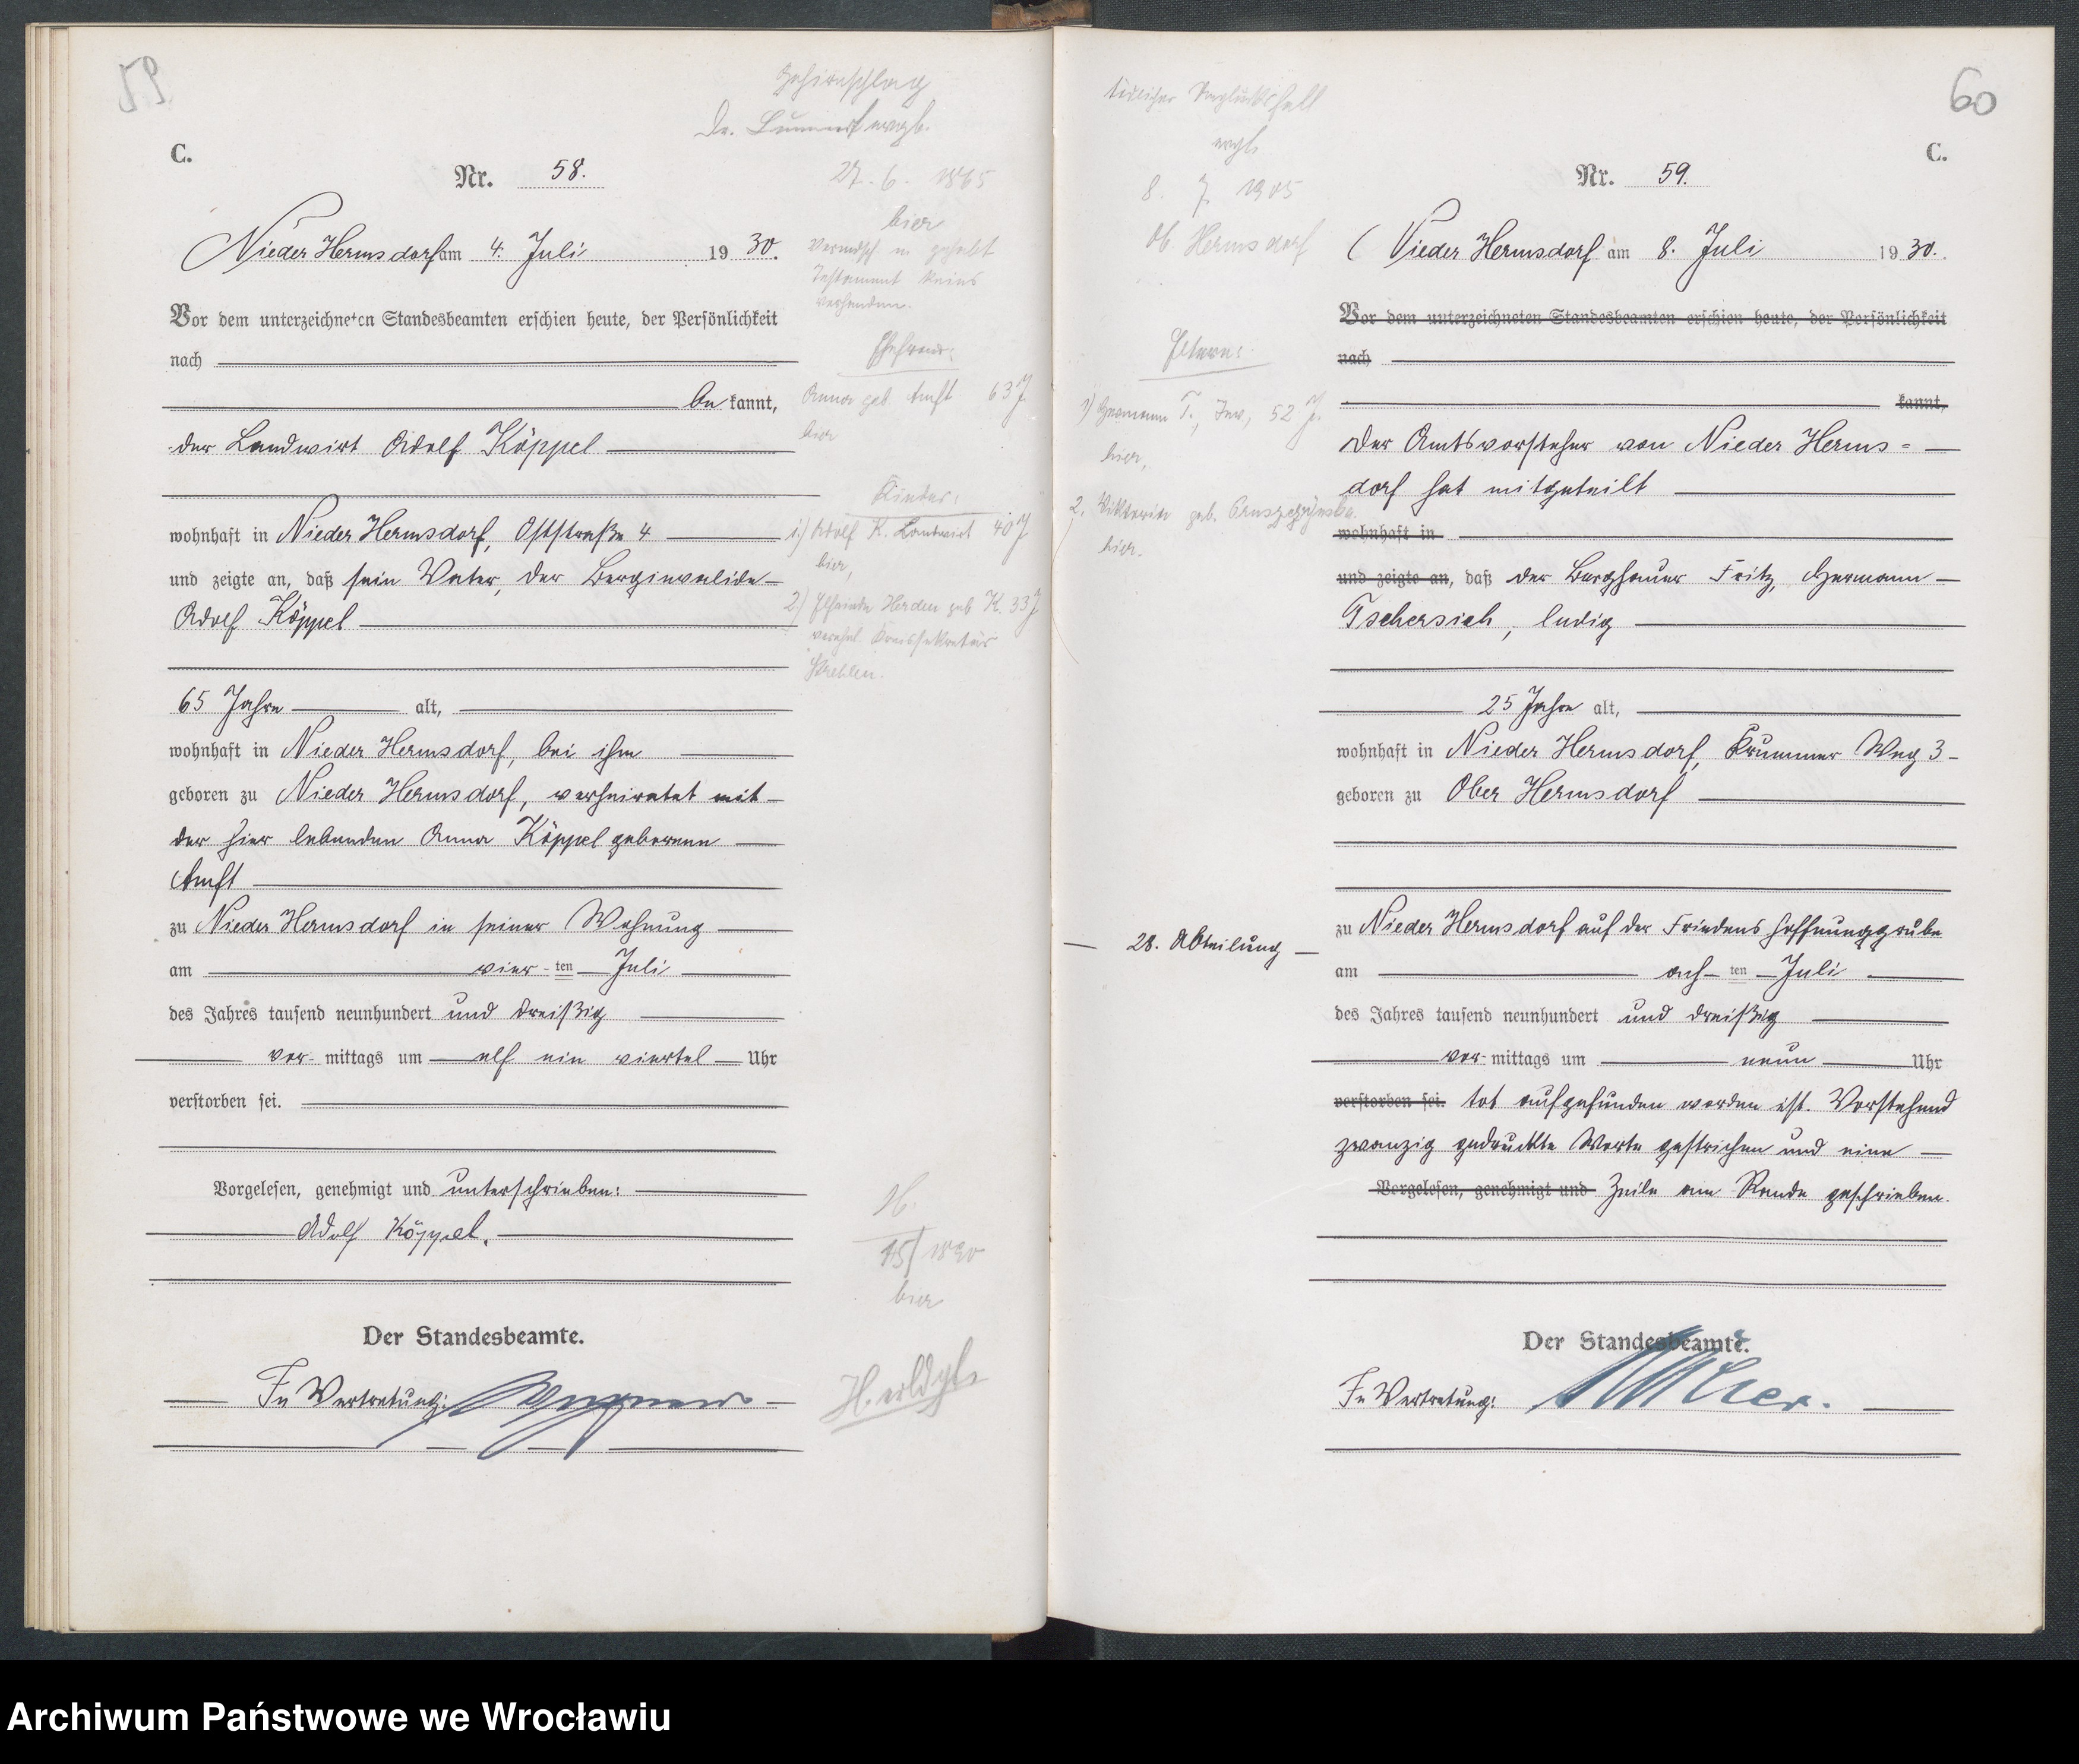 59
Gehirnschlag
27. 6. 1865
hier
Testament keins
vorhanden.
Ehefrau:
Anna geb Amft 63 J.
hier
Kinder:
1.) Adolf K. Landwirt 40 J
hier,
2.) Elfriede Herden geb K. 33 J
verehel. Kreissekretär
Strehlen.
C.
Nr. 58.
Nieder Hermsdorf am 4. Juli 1930.
Vor dem unterzeichneten Standesbeamten erschien heute, der Persönlichkeit
nach
be kannt,
der Landwirt Adolf Köppel
wohnhaft in Nieder Hermsdorf, Oststraße 4
und zeigte an, daß sein Vater, der Berginvalide
Adolf Köppel
65 Jahre alt,
wohnhaft in Nieder Hermsdorf, bei ihm
geboren zu Nieder Hermsdorf, verheiratet mit
der hier lebenden Anna Köppel geborene
Amft
zu Nieder Hermsdorf in seiner Wohnung
am vier-ten Juli
des Jahres tausend neunhundert und dreißig
vor-mittags um elf ein viertel Uhr
verstorben sei.
Vorgelesen, genehmigt und unterschrieben:
Adolf Köppel.
H.
15/1890
hier
Der Standesbeamte.
In Vertretung:
60
tödlicher Unglücksfall
8. 7. 1905
Ob. Hermsdorf
Eltern:
1) Hermann T., Inv, 52 J.
hier,
2. Viktoria geb.
hier.
C.
Nr. 59.
Nieder Hermsdorf am 8. Juli 1930.
Vor dem unterzeichneten Standesbeamten erschien heute, der Persönlichkeit
nach
kannt,
Der Amtsvorsteher von Nieder Herms-
dorf hat mitgeteilt
wohnhaft in
und zeigte an, daß der Berghauer Fritz, Hermann
Tschersich, ledig
25 Jahre alt,
wohnhaft in Nieder Hermsdorf, Krummer Weg 3
geboren zu Ober Hermsdorf
zu Nieder Hermsdorf auf der Friedenshoffnunggrube
— 28. Abteilung —
am ach-ten Juli
des Jahres tausend neunhundert und dreißig
vor-mittags um neun Uhr
verstorben sei. tot aufgefunden worden ist. Vorstehend
zwanzig gedruckte Worte gestrichen und eine
Vorgelesen, genehmigt und Zeile am Rande geschrieben.
Der Standesbeamte.
In Vertretung:
Archiwum Państwowe we Wrocławiu